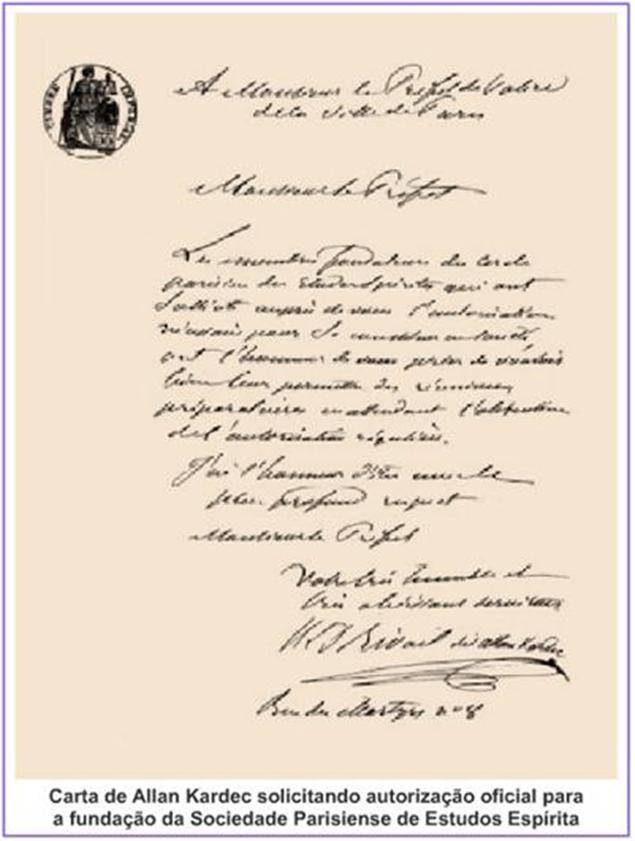 TIMBRE IMPERIAL
A Monsieur le Préfet de Police
de la Ville de Paris
Monsieur le Préfet
Les membres fondateurs du Cercle
parisien des Etudes spirites qui ont
sollicité auprès de vous l'autorisation
nécessaire pour se constituer en société
ont l'honneur de vous prier de vouloir
bien leur permettre des réunions
préparatoires en attendant l'obtention
de l'autorisation régulière.
J'ai l'honneur d'être avec le
plus profond respect
Monsieur le Préfet
Votre très humble et
très obéissant serviteur
H L D Rivail dit Allan Kardec
Rue des Martyrs n° 8
Carta de Allan Kardec solicitando autorização oficial para
a fundação da Sociedade Parisiense de Estudos Espírita